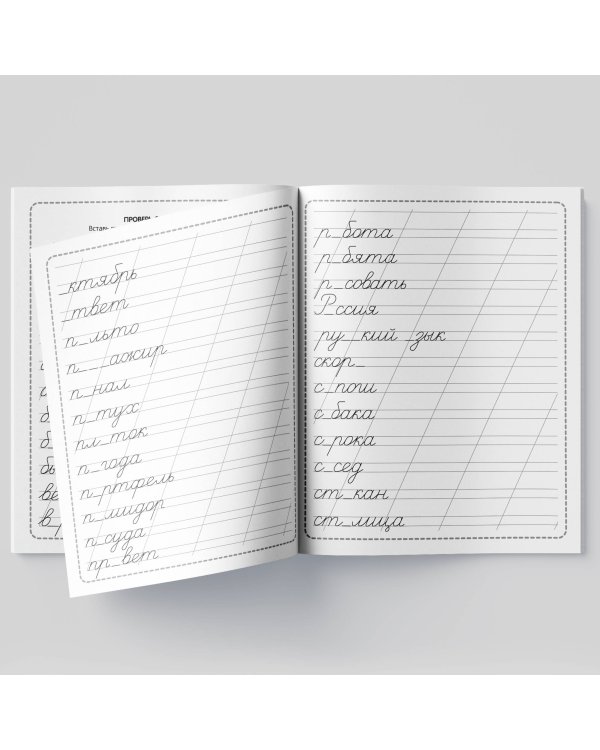 ПРОВЕРЬ
Вставь
_ктябрь
_твет
п_льто
п___ажир
п_нал
п_тух
пл_ток
п_года
п_ртфель
п_мидор
п_суда
пр_вет
р_бота
р_бята
р_совать
Р_ссия
ру_кий _зык
скор_
с_поги
с_бака
с_рока
с_сед
ст_кан
ст_лица